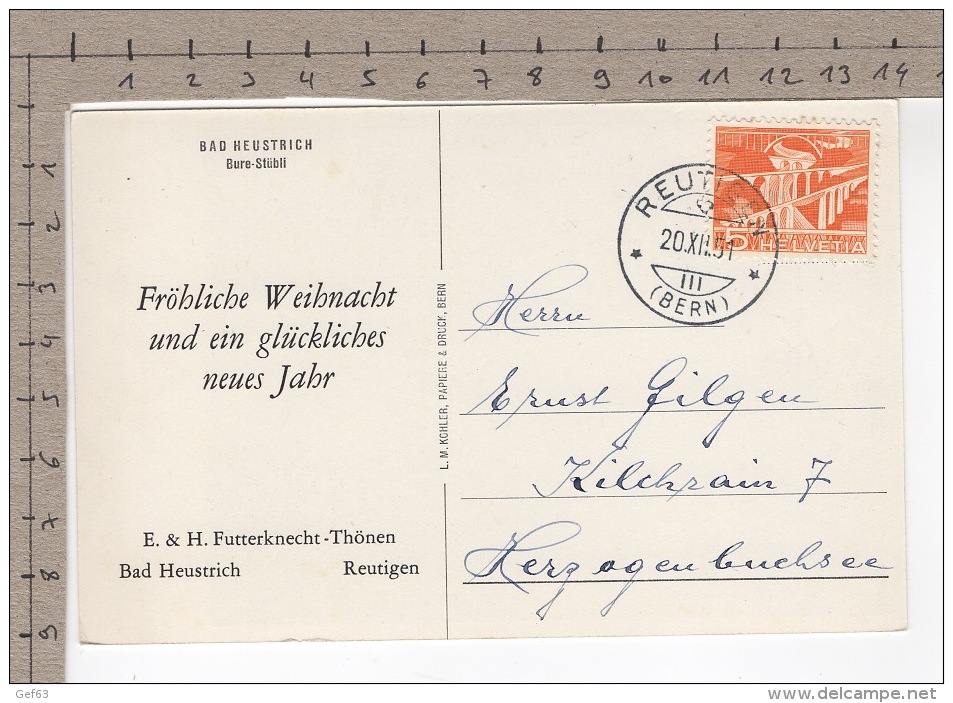 1 2 3 4 5 6 7 8 9 10 11 12 13 14
1
2
3
4
5
6
7
8
9
BAD HEUSTRICH
Bure-Stübli
Fröhliche Weihnacht
und ein glückliches
neues Jahr
E. & H. Futterknecht-Thönen
Bad Heustrich Reutigen
L. M. KOHLER, PAPIERE & DRUCK, BERN
REUTIGEN
20.XII.51
III
(BERN)
5 HELVETIA
Herrn
Ernst Gilgen
Kilchrain 7
Herzogenbuchsee
Gef63
www.delcampe.net